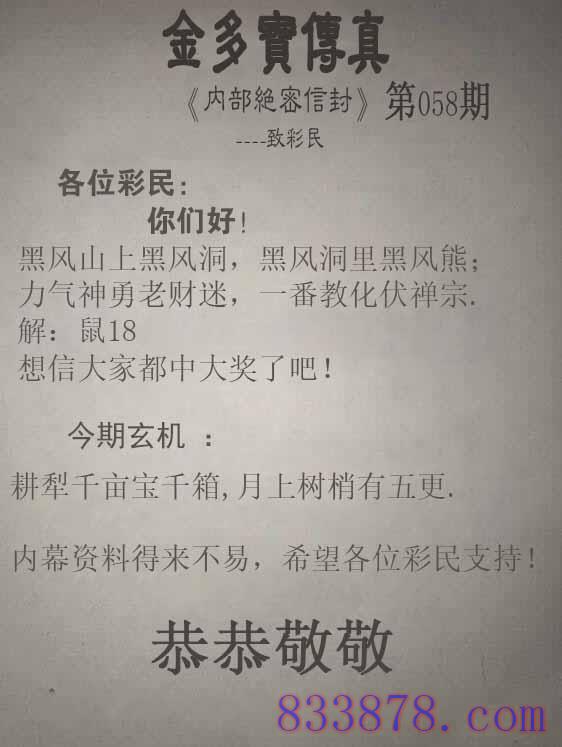 金多寶傳真
《内部絶密信封》第058期
----致彩民
各位彩民：
你们好！
黑风山上黑风洞，黑风洞里黑风熊；
力气神勇老财迷，一番教化伏禅宗.
解：鼠18
想信大家都中大奖了吧！
今期玄机 ：
耕犁千亩宝千箱,月上树梢有五更.
内幕资料得来不易，希望各位彩民支持！
恭恭敬敬
833878.com